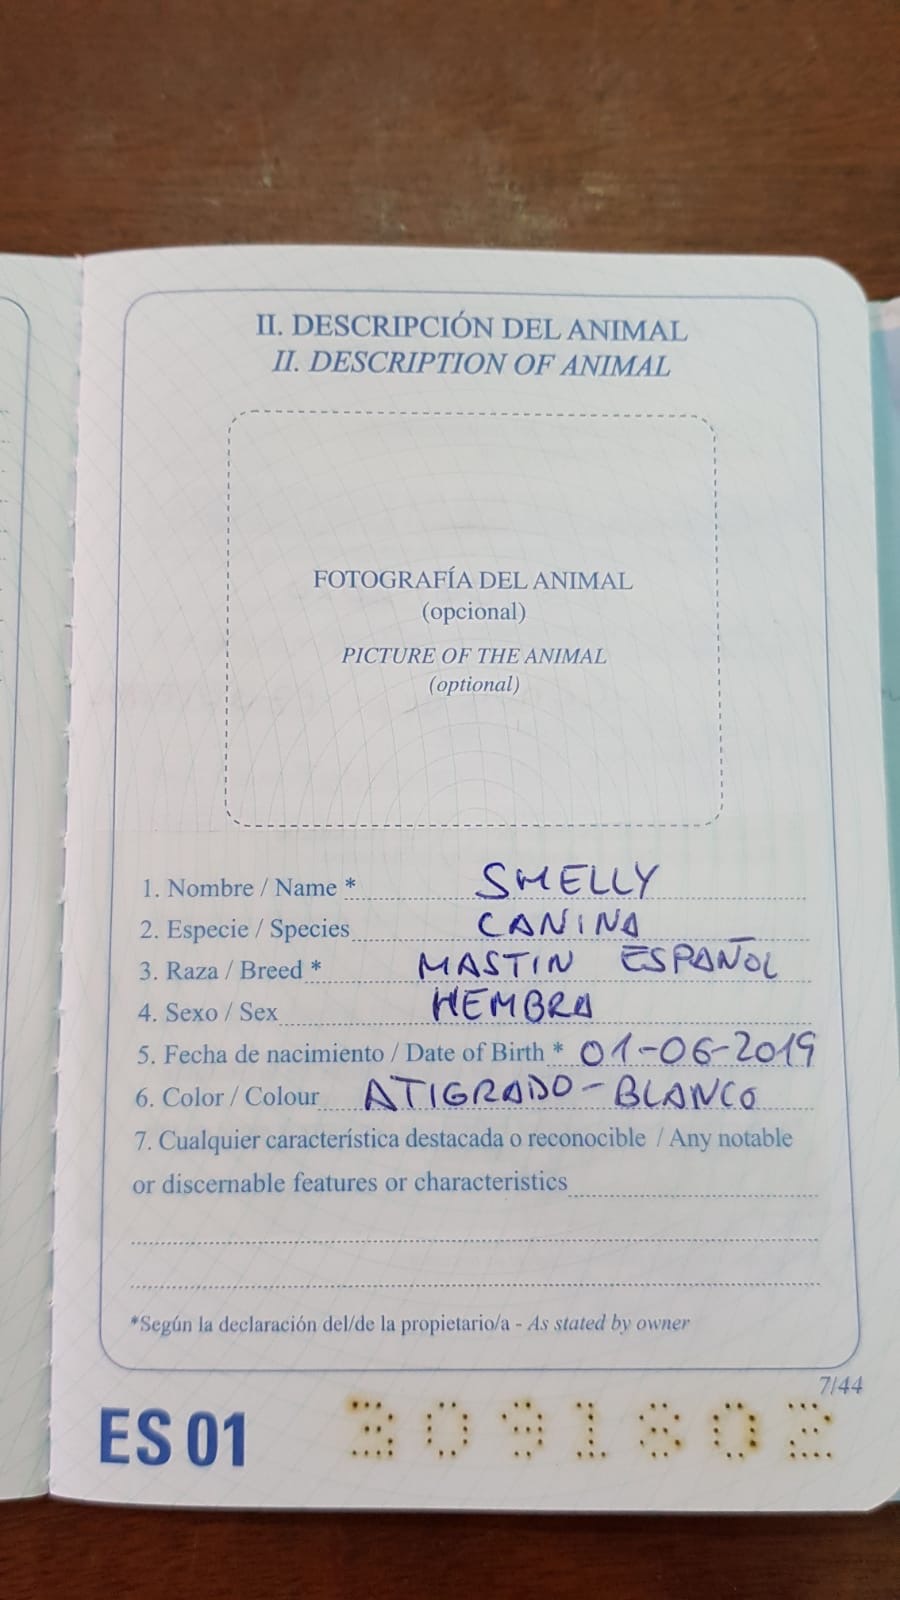 II. DESCRIPCIÓN DEL ANIMAL
II. DESCRIPTION OF ANIMAL
FOTOGRAFÍA DEL ANIMAL
(opcional)
PICTURE OF THE ANIMAL
(optional)
1. Nombre / Name * SMELLY
2. Especie / Species CANINA
3. Raza / Breed * MASTIN ESPAÑOL
4. Sexo / Sex HEMBRA
5. Fecha de nacimiento / Date of Birth * 01-06-2019
6. Color / Colour ATIGRADO-BLANCO
7. Cualquier característica destacada o reconocible / Any notable
or discernable features or characteristics
*Según la declaración del/de la propietario/a - As stated by owner
7/44
ES 01 3091602